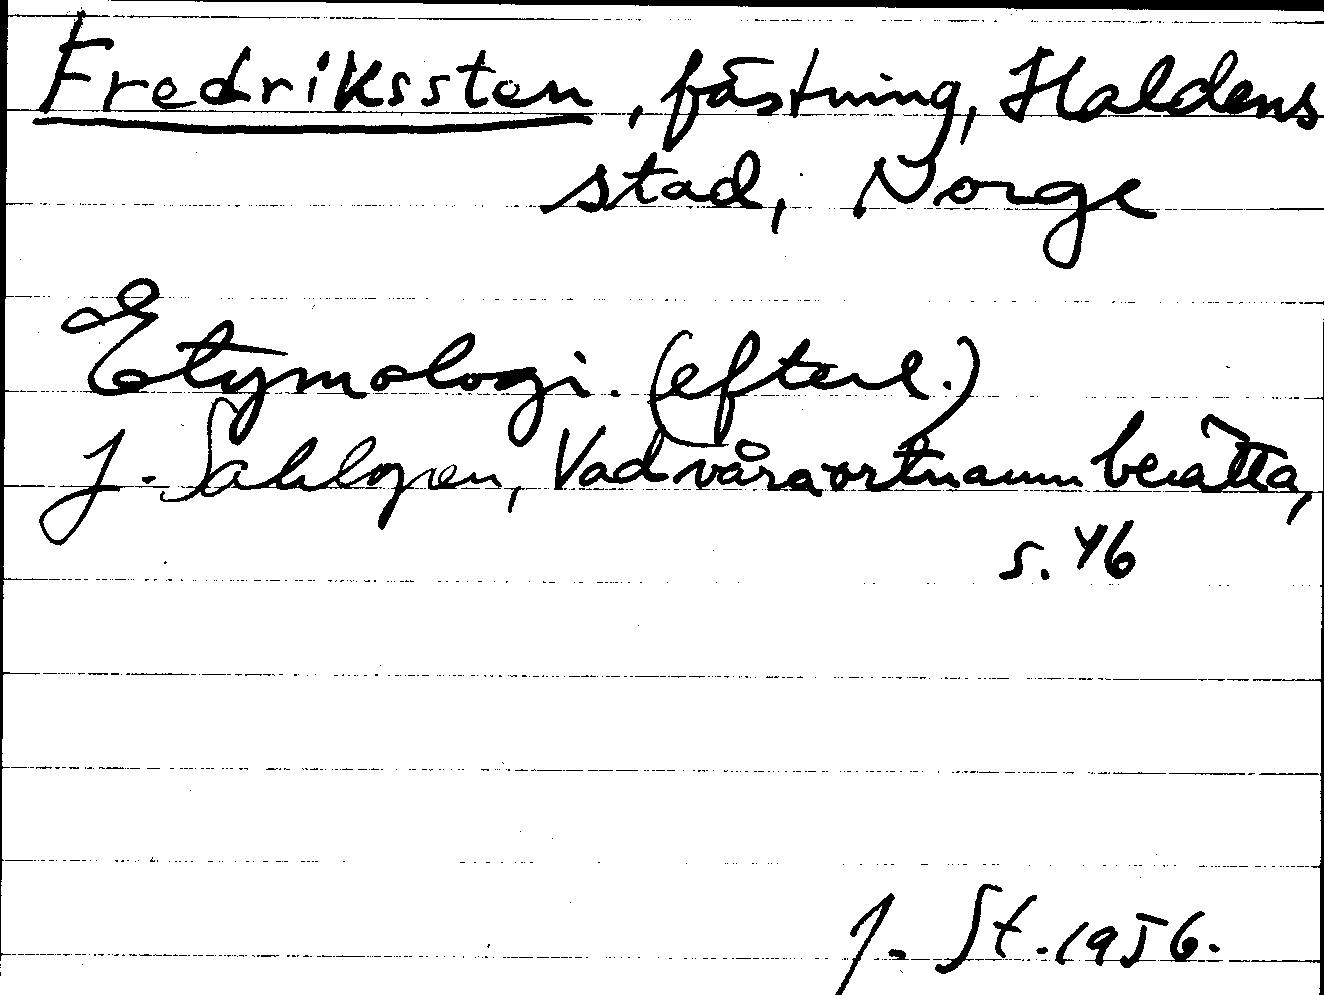 Fredriksten, fästning, Haldens
stad, Norge
Etymologi. (efterl.)
J. Sahlgren, Vad våra ortnamn berätta,
s. 46
J. St. 1956.